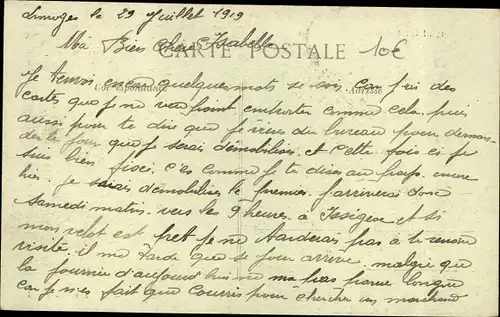 Limoges le 29 Juillet 1919
10€
Ma Bien chère Isabelle
CARTE POSTALE
Je t'envoi encor quelques mots se soir car j'ai des
Correspondance
Adresse
cartes que je ne veux point emporter comme cela puis
aussi pour te dire que je viens du bureau pour deman-
der le jour que je serai démobiliser et cette fois ci je
suis bien fixé c'es comme je te disais au encore
hier je serais démobiliser le premier j'arriverai donc
Samedi matin vers les 9 heures à Issigeac et si
mon velot est pret je ne tarderai pas à te rendre
visite il me tarde que se jour arrive malgré que
la journée d'aujourd'hui ne ma pas parue longue
car je n'es fait que courrir pour chercher un marchand